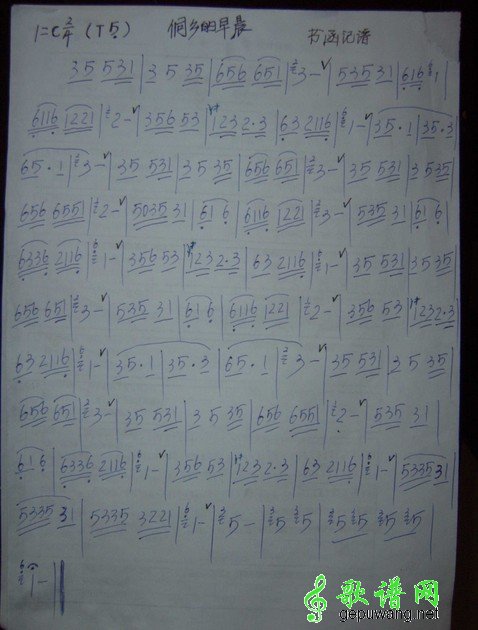 1=C 2/4 (T5) 侗乡的早晨 书函记谱
35 531 | 3 5 35 | 656 651 | 3 - | 535 31 | 616 1 |
6116 1221 | 2 - | 356 53 | 123 2·3 | 63 2116 | 1 - | 35·1 | 35·3 |
65·1 | 3 - | 35 531 | 35 35 | 656 651 | 3 - | 35 531 | 3 535 |
656 6551 | 2 - | 5035 31 | 61 6 | 6116 1221 | 3 - | 535 31 | 61 6 |
6336 2116 | 1 - | 356 53 | 123 2·3 | 63 2116 | 1 - | 35 531 | 35 35 |
656 651 | 3 - | 535 31 | 61 6 | 6116 1221 | 2 - | 356 53 | 123 2·3 |
63 2116 | 1 - | 35·1 | 35·3 | 65·1 | 3 - | 35 531 | 35 35 |
656 651 | 3 - | 35 531 | 3 5 35 | 656 6551 | 2 - | 535 31 |
61 6 | 6336 2116 | 1 - | 356 53 | 123 2·3 | 63 2116 | 1 - | 53353 1 |
5335 31 | 5335 3221 | 1 - | 5 - | 5 5 | 5 5 5 5 |
1 - ‖
歌谱网
gepuwang.net